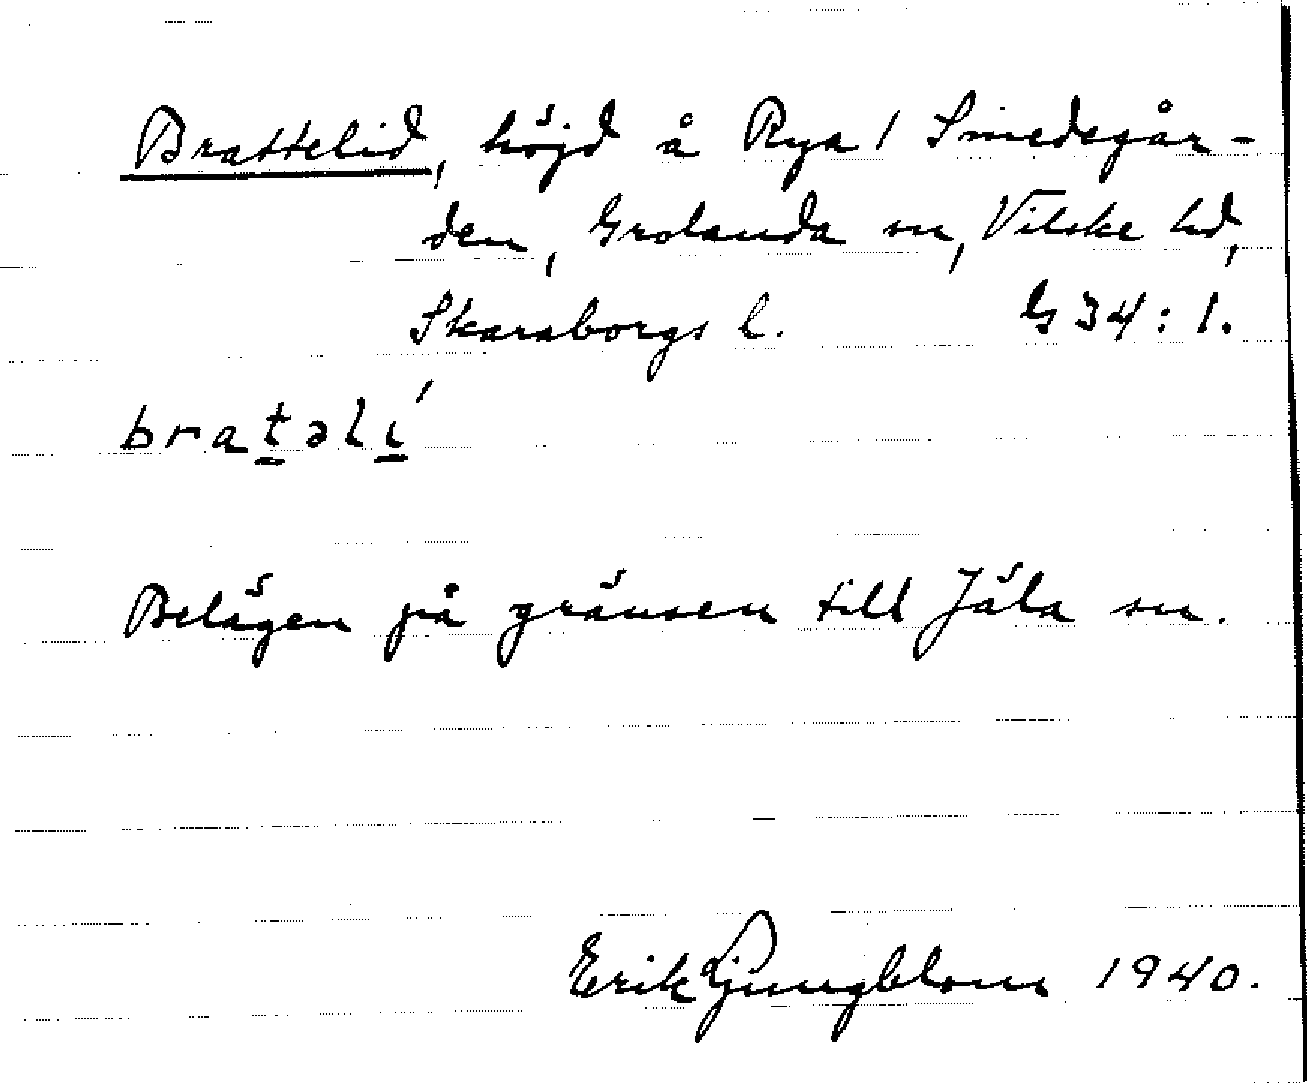 Brattelid, höjd å Rya 1 Smedegår-
den, Grolanda sn, Vilske hd,
Skaraborgs l. G 34:1.
bratəlí
Belägen på gränsen till Jäla sn.
Erik Ljungblom 1940.